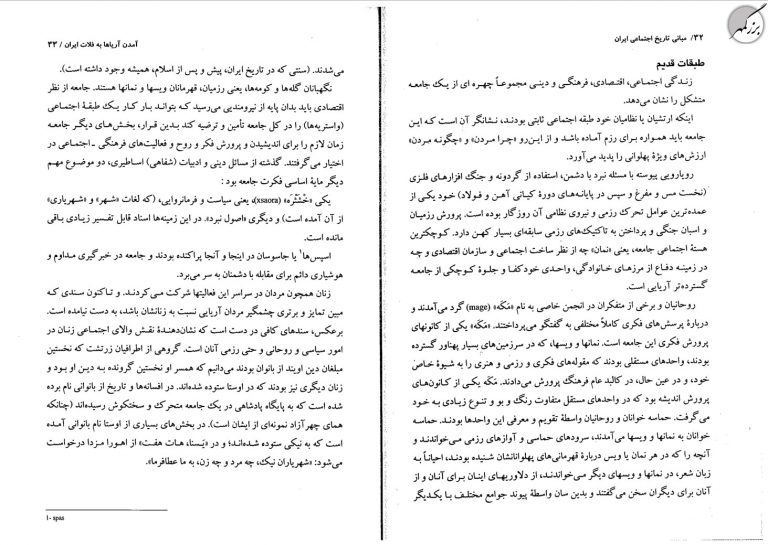 ۳۲/ مبانی تاریخ اجتماعی ایران
بزرگمهر
طبقات قدیم
زندگی اجتماعی، اقتصادی، فرهنگی و دینی مجموعاً چهره‌ای از یک جامعه
متشکل را نشان می‌دهد.
اینکه ارتشیان یا نظامیان خود طبقه اجتماعی ثابتی بودند، نشانگر آن است که این
جامعه باید همواره برای رزم آماده باشد و از این‌رو «چرا مردن» و «چگونه مردن»
ارزش‌های ویژهٔ پهلوانی را پدید می‌آورد.
رویارویی پیوسته با مسئله نبرد با دشمن، استفاده از گردونه و جنگ افزارهای فلزی
(نخست مس و مفرغ و سپس در پایانه‌های دورهٔ کیانی آهن و فولاد) خود یکی از
عمده‌ترین عوامل تحرک رزمی و نیروی نظامی آن روزگار بوده است. پرورش رزمیان
و اسبان جنگی و پرداختن به تاکتیک‌های رزمی سابقه‌ای بسیار کهن دارد. کوچکترین
هستهٔ اجتماعی جامعه، یعنی «نمان» چه از نظر ساخت اجتماعی و سازمان اقتصادی و چه
در زمینه دفاع از مرزهای خانوادگی، واحدی خودکفا و جلوهٔ کوچکی از جامعه
گسترده‌تر آریایی است.
روحانیان و برخی از متفکران در انجمن خاصی به نام «مَگَه» (mage) گرد می‌آمدند و
دربارهٔ پرسش‌های فکری کاملاً مختلفی به گفتگو می‌پرداختند. «مَگَه» یکی از کانونهای
پرورش فکری این جامعه است. نمانها و ویسها، که در سرزمین‌های بسیار پهناور گسترده
بودند، واحدهای مستقلی بودند که مقوله‌های فکری و رزمی و هنری را به شیوهٔ خاص
خود، و در عین حال، در کالبد عام فرهنگ پرورش می‌دادند. مَگَه یکی از کانون‌های
پرورش اندیشه بود که در واحدهای مستقل متفاوت رنگ و بو و تنوع زیادی به خود
می‌گرفت. حماسه خوانان و روحانیان واسطهٔ تقویم و معرفی این واحدها بودند. حماسه
خوانان به نمانها و ویسها می‌آمدند، سرودهای حماسی و آوازهای رزمی می‌خواندند و
آنچه را که در هر نمان یا ویس دربارهٔ قهرمانی‌های پهلوانانشان شنیده بودند، احیاناً به
زبان شعر، در نمانها و ویسهای دیگر می‌خواندند، از دلاوریهای اینان برای آنان و از
آنان برای دیگران سخن می‌گفتند و بدین سان واسطهٔ پیوند جوامع مختلف با یکدیگر
آمدن آریاها به فلات ایران / ۳۳
می‌شدند. (سنتی که در تاریخ ایران، پیش و پس از اسلام، همیشه وجود داشته است).
نگهبانان گله‌ها و کومه‌ها، یعنی رزمیان، قهرمانان ویسها و نمانها هستند. جامعه از نظر
اقتصادی باید بدان پایه از نیرومندیی می‌رسید که بتواند بار کار یک طبقهٔ اجتماعی
(واستریه‌ها) را در کل جامعه تأمین و ترضیه کند بدین قرار، بخش‌های دیگر جامعه
زمان لازم را برای اندیشیدن و پرورش فکر و روح و فعالیت‌های فرهنگی ـ اجتماعی در
اختیار می‌گرفتند. گذشته از مسائل دینی و ادبیات (شفاهی) اساطیری، دو موضوع مهم
دیگر مایهٔ اساسی فکرت جامعه بود:
یکی «خْشَثْرَه» (xsaora)، یعنی سیاست و فرمانروایی، (که لغات «شهر» و «شهریاری»
از آن آمده است) و دیگری «اصول نبرد». در این زمینه‌ها اسناد قابل تفسیر زیادی باقی
مانده است.
اسپس‌ها۱ یا جاسوسان در اینجا و آنجا پراکنده بودند و جامعه در خبرگیری مداوم و
هوشیاری دائم برای مقابله با دشمنان به سر می‌برد.
زنان همچون مردان در سراسر این فعالیتها شرکت می‌کردند. و تاکنون سندی که
مبین تمایز و برتری چشمگیر مردان آریایی نسبت به زنانشان باشد، به دست نیامده است.
برعکس، سندهای کافی در دست است که نشان‌دهندهٔ نقش والای اجتماعی زنان در
امور سیاسی و روحانی و حتی رزمی آنان است. گروهی از اطرافیان زرتشت که نخستین
مبلغان دین اویند از بانوان بودند می‌دانیم که همسر او نخستین گرونده به دین او بود و
زنان دیگری نیز بودند که در اوستا ستوده شده‌اند. در افسانه‌ها و تاریخ از بانوانی نام برده
شده است که به پایگاه پادشاهی در یک جامعه متحرک و سختکوش رسیده‌اند (چنانکه
همای چهرآزاد نمونه‌ای از ایشان است). در بخش‌های بسیاری از اوستا نام بانوانی آمده
است که به نیکی ستوده شده‌اند؛ و در «یَسنا، هات هفت» از اهورا مزدا درخواست
می‌شود: «شهریاران نیک، چه مرد و چه زن، به ما عطافرما».
1- spas